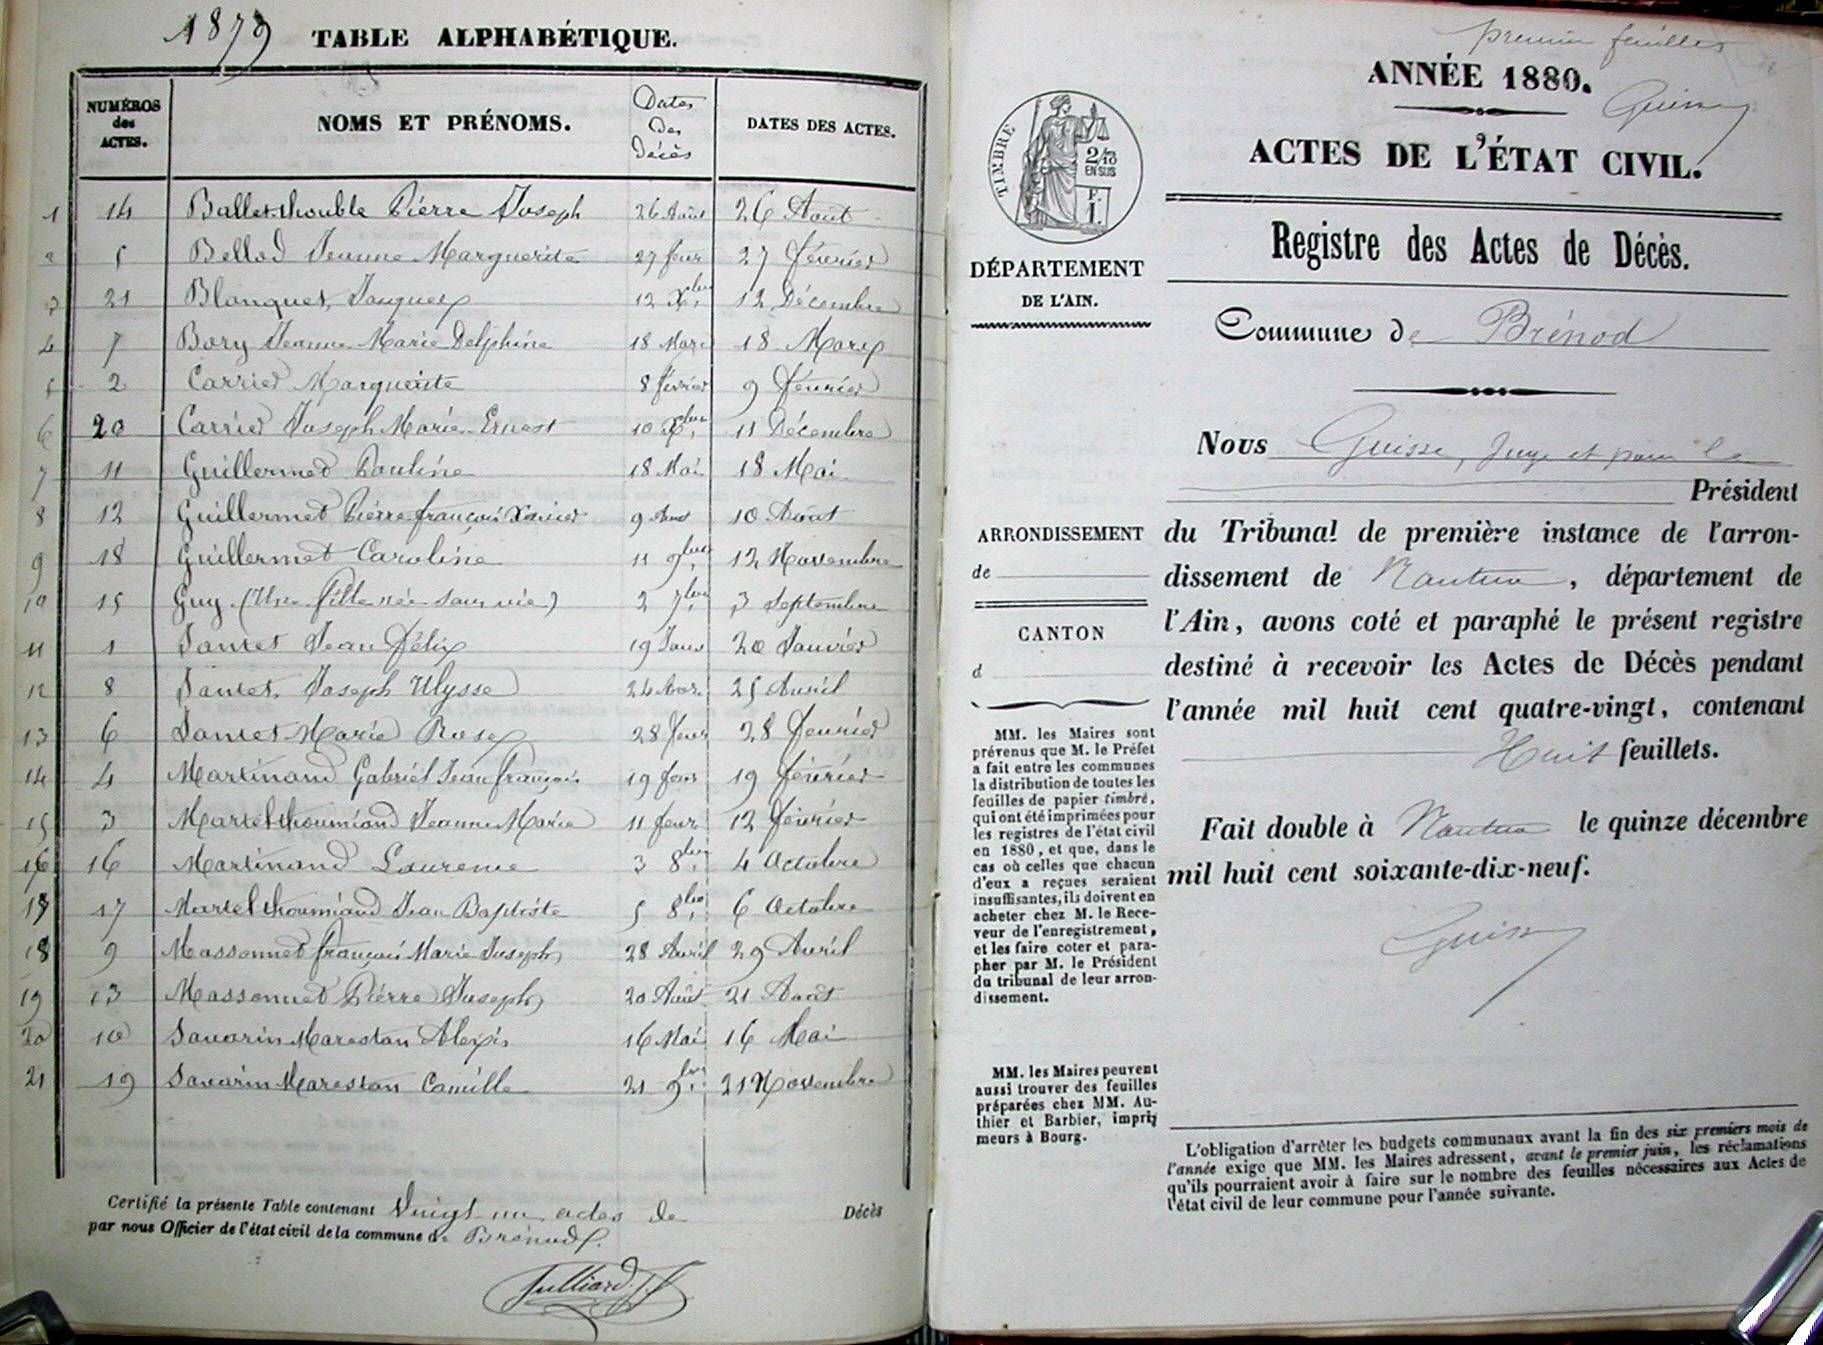 1879 TABLE ALPHABÉTIQUE.
NUMÉROS des ACTES. NOMS ET PRÉNOMS. Dates des Décès DATES DES ACTES.
1 14 Ballet-thouble Pierre Joseph 26 Août 26 Août
2 5 Bellod Jeanne Marguerite 27 fevr 27 février
3 21 Blanquet, Jacques 12 Xbre 12 Décembre
4 7 Bory Jeanne Marie Delphine 18 Mars 18 Mars
5 2 Carrier Marguerite 8 février 9 février
6 20 Carrier Joseph Marie Ernest 10 Xbre 11 Décembre
7 11 Guillermet Pauline 18 Mai 18 Mai
8 12 Guillermet Pierre françois Xavier 9 Aout 10 Août
9 18 Guillermet Caroline 11 9bre 12 Novembre
10 15 Guy (Une fille née sans vie) 2 7bre 3 Septembre
11 1 Jantet Jean Félix 19 Janv 20 Janvier
12 8 Jantet, Joseph Ulysse 24 Avr. 25 Avril
13 6 Jantet Marie Rose 28 fevr 28 fevrier
14 4 Martinand Gabriel Jean françois 19 fevr 19 février
15 3 Martel-thoumiand Jeanne Marie 11 fevr 12 février
16 16 Martinand Laurence 3 8bre 4 Octobre
17 17 Martel thoumiand Jean Baptiste 5 8bre 6 Octobre
18 9 Massonnet françois Marie Joseph 28 Avril 29 Avril
19 13 Massonnet Pierre Joseph 20 Août 21 Août
20 10 Savarin Marestan Alexis 16 Mai 16 Mai
21 19 Savarin Marestan Camille 21 9bre 21 Novembre
Certifié la présente Table contenant Vingt-un actes de Décès
par nous Officier de l'état civil de la commune de Brénod.
Julliard
premier feuillet
ANNÉE 1880.
Guisse
ACTES DE L'ÉTAT CIVIL.
Registre des Actes de Décès.
Commune de Brénod
TIMBRE
2/10 EN SUS
F. 1.
DÉPARTEMENT
DE L'AIN.
ARRONDISSEMENT
de
CANTON
d
MM. les Maires sont
prévenus que M. le Préfet
a fait entre les communes
la distribution de toutes les
feuilles de papier timbré,
qui ont été imprimées pour
les registres de l'état civil
en 1880, et que, dans le
cas où celles que chacun
d'eux a reçues seraient
insuffisantes, ils doivent en
acheter chez M. le Rece-
veur de l'enregistrement,
et les faire coter et para-
pher par M. le Président
du tribunal de leur arron-
dissement.
MM. les Maires peuvent
aussi trouver des feuilles
préparées chez MM. Au-
thier et Barbier, impri-
meurs à Bourg.
Nous Guisse, Juge et pour le
Président
du Tribunal de première instance de l'arron-
dissement de Nantua, département de
l'Ain, avons coté et paraphé le présent registre
destiné à recevoir les Actes de Décès pendant
l'année mil huit cent quatre-vingt, contenant
Huit feuillets.
Fait double à Nantua le quinze décembre
mil huit cent soixante-dix-neuf.
Guisse
L'obligation d'arrêter les budgets communaux avant la fin des six premiers mois de
l'année exige que MM. les Maires adressent, avant le premier juin, les réclamations
qu'ils pourraient avoir à faire sur le nombre des feuilles nécessaires aux Actes de
l'état civil de leur commune pour l'année suivante.